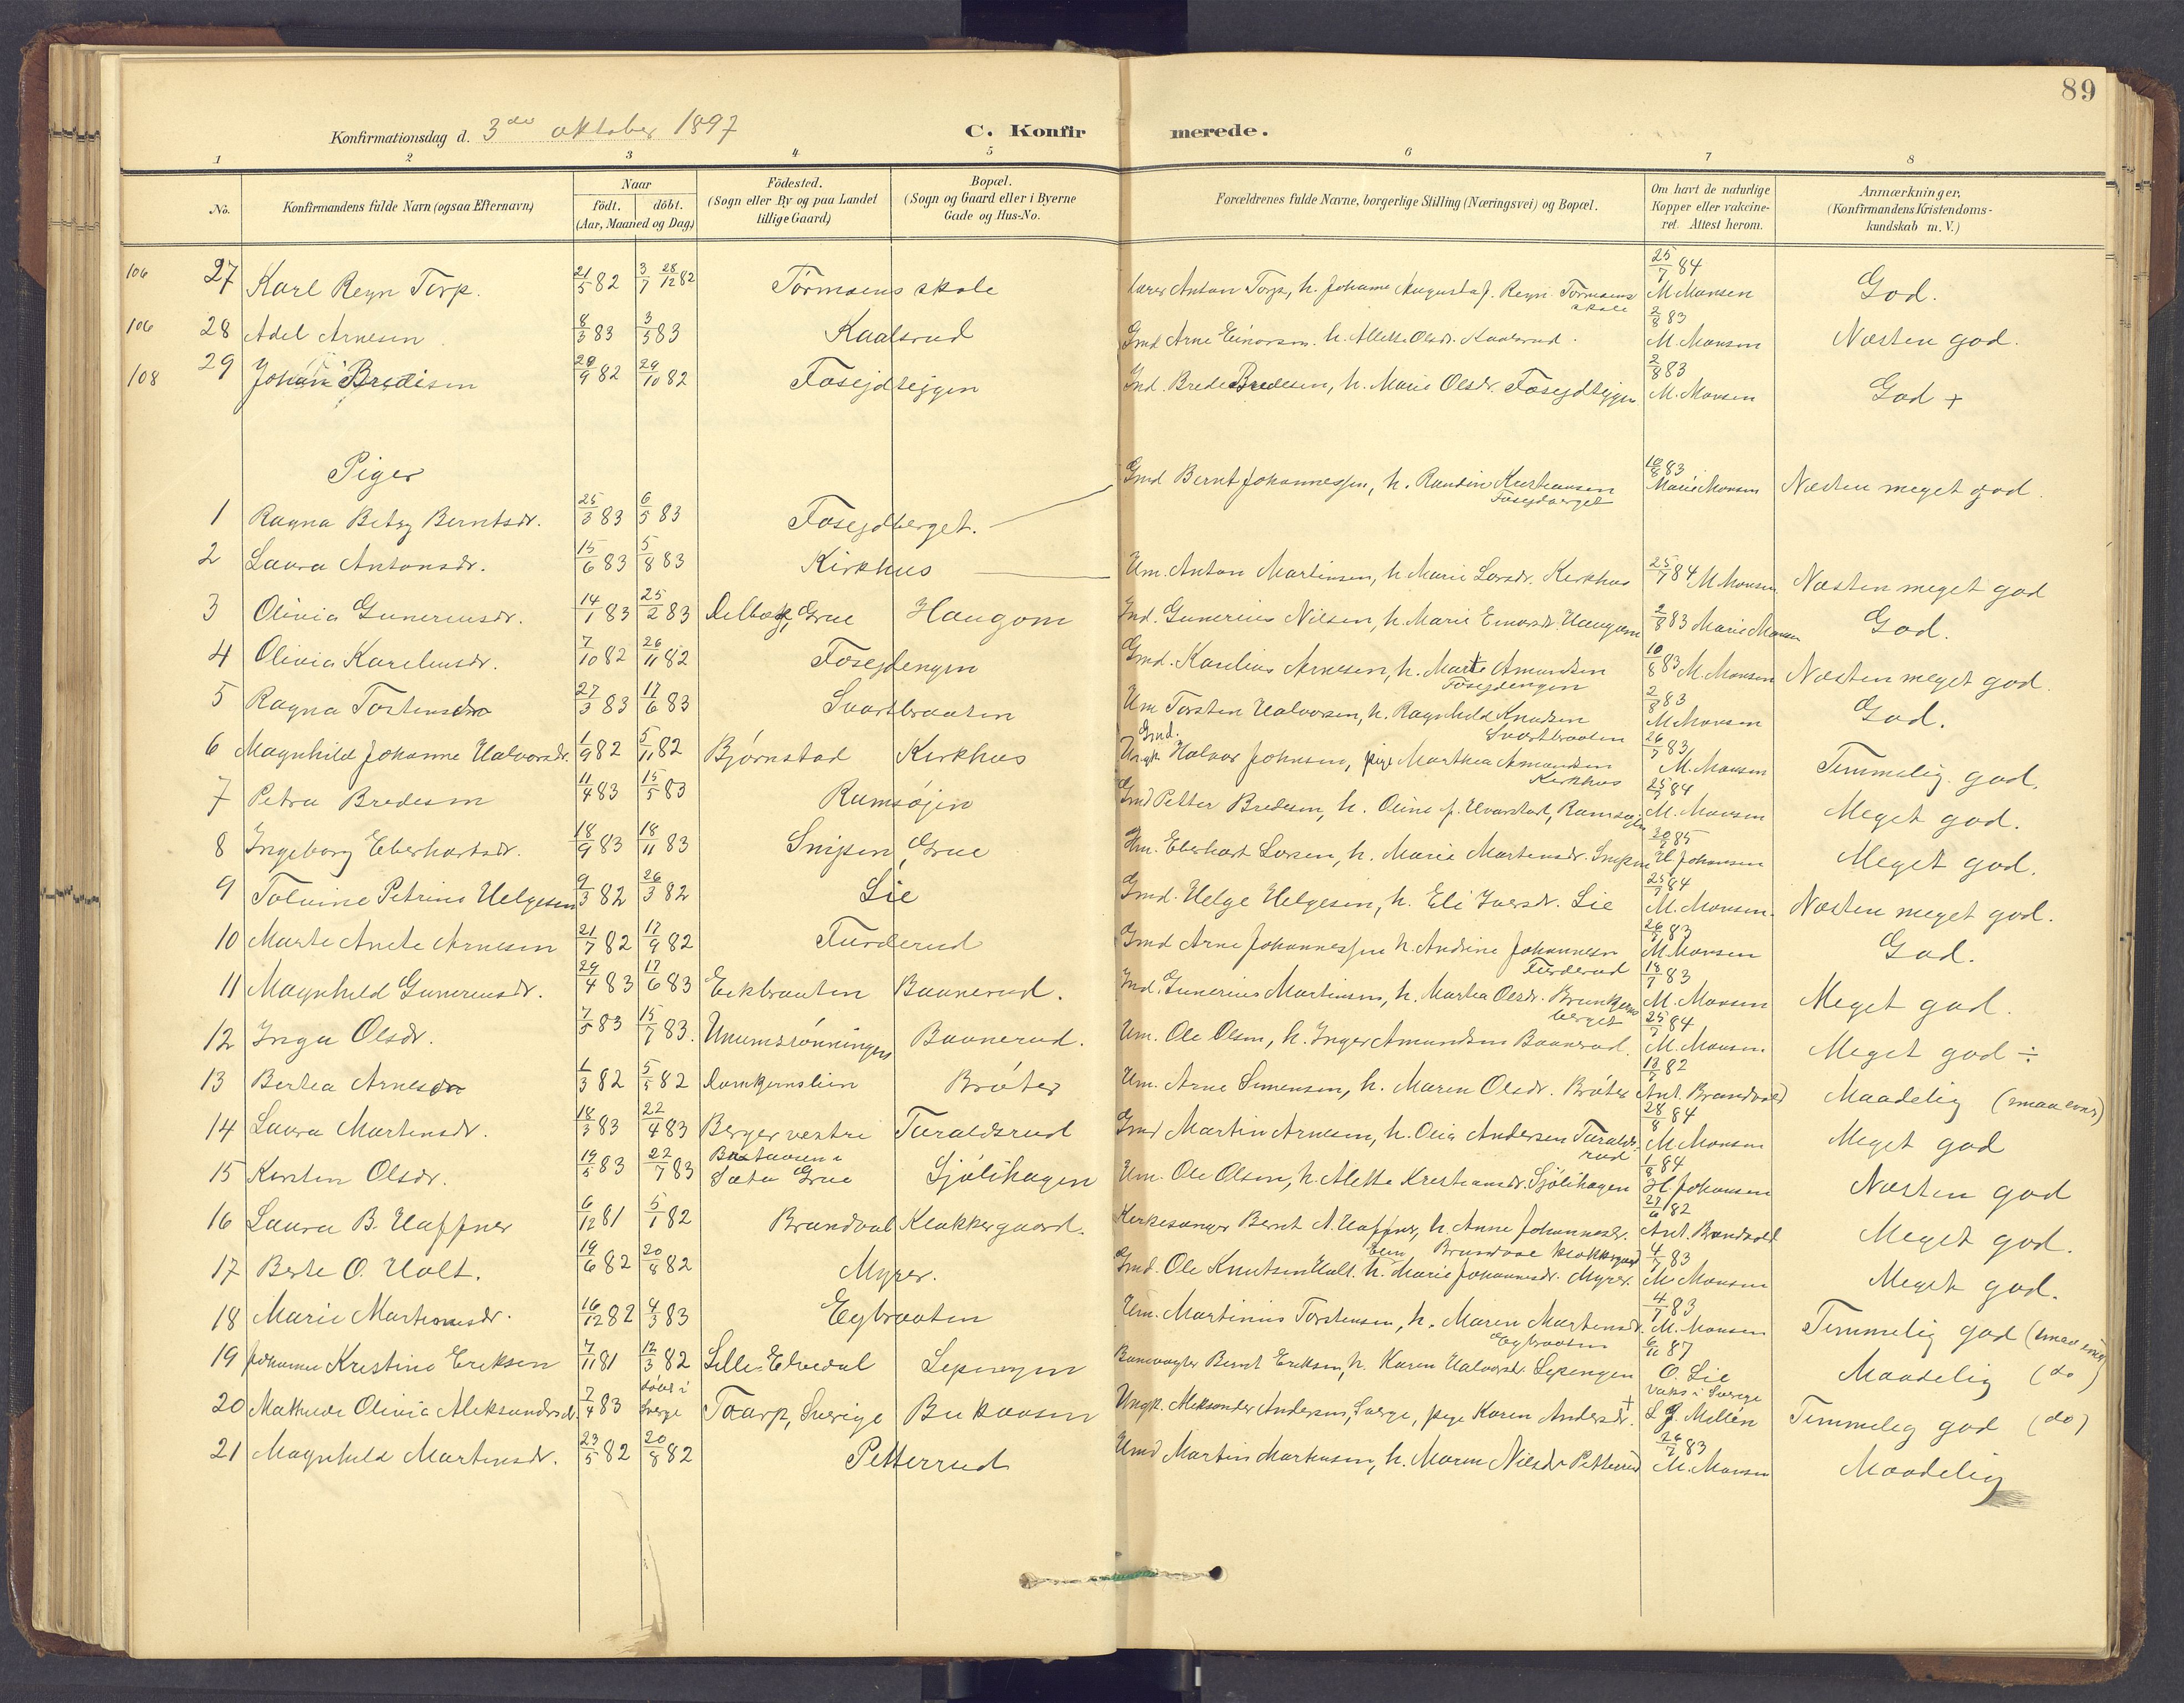 89
Konfirmationsdag d. 3die oktober 1897 C. Konfir merede.
1 2 3 4 5 6 7 8
No. Konfirmandens fulde Navn (ogsaa Efternavn) Naar födt. döbt. (Aar, Maaned og Dag) Födested. (Sogn eller By og paa Landet tillige Gaard) Bopæl. (Sogn og Gaard eller i Byerne Gade og Hus-No. Forældrenes fulde Navne, borgerlige Stilling (Næringsvei) og Bopæl. Om havt de naturlige Kopper eller vakcineret. Attest herom. Anmærkninger, (Konfirmandens Kristendomskundskab m. V.)
106 27 Karl Reyn Torp. 21/5 82 3/7 28/12 82 Tørmoens skole Anton Torp, h. Johanne Augusta f. Reyn Tormoens skole 25/7 84 M Monsen God.
106 28 Adel Arnesen 8/3 83 3/5 83 Kaalsrud Gmd Arne Einarsen h. Alette Olsdr. Kaalsrud. 2/8 83 M. Monsen Næsten god.
108 29 Johan Bredesen 28/9 82 29/10 82 Fosejdteppen Ind. Brede Bredesen, h. Marie Olsdr. 2/8 83 M. Monsen God +
Piger
1 Ragna Betzy Berntsdr. 25/3 83 6/5 83 Fosejdberget. Gmd Bernt Johannessen, h. Randine Fosejdberget 10/8 83 Marie Monsen Næsten meget god.
2 Laura Antonsdr. 15/6 83 5/8 83 Kirkhus Um. Anton Martinsen, h. Marie Larsdr. Kirkhus 25/7 84 M Monsen Næsten meget god
3 Olivia Gunereusdr. 14/1 83 25/2 83 Grue Haugom Ind. Gunerius Nilsen, h. Marie Einarsdr. Haugom 2/8 83 Marie Monsen God.
4 Olivia Kareliusdr. 7/10 82 26/11 82 Fosejdengen Gmd. Karelius Arnesen, h. Marte Amundsen Fosejdengen 10/8 83 M. Monsen Næsten meget god.
5 Ragna Tostensdr 27/3 83 17/6 83 Svartbraaten Um Torsten Halvorsen, h. Ragnhild Knudsen Svartbraaten 2/8 83 M Monsen God.
6 Magnhild Johanne Halvorsdr. 1/9 82 5/11 82 Bjørnstad Kirkhus Gmd. Ungk. Halvor Johnsen, pige Marthea Amundsen Kirkhus 26/7 83 M. Monsen Temmelig god.
7 Petra Bredesen 11/4 83 15/5 83 Ramsøjen Gmd Petter Bredesen, h. Oline f. Ramsøjen 25/7 84 M. Monsen Meget god.
8 Ingeborg Eberhartsdr. 18/9 83 18/11 83 Snipen, Grue Um. Eberhart Larsen, h. Marie Martinsdr. Snipen 85 H Johansen Meget god.
9 Tolvine Petrine Helgesen 9/3 82 26/3 82 Lie Gmd. Helge Helgesen, h. Eli Iversdr. Lie 25/7 84 M. Monsen. Næsten meget god.
10 Marte Anete Arnesen 21/7 82 17/9 82 Furderud Gmd Arne Johannessen h. Andrine Johannesen Furderud 26/7 83 M Monsen God.
11 Magnhild Gunereusdr. 29/4 83 17/6 83 Eekbraaten Baanerud. Ind. Gunerius Martinsen, h. Martea Olsdr. 18/7 83 M. Monsen Meget god.
12 Inga Olsdr. 7/5 83 15/7 83. Baanerud. Um. Ole Olsen, h. Inger Amundsen Baanerud. 25/7 84 M. Monsen Meget god ÷
13 Bertea Arnesdr 1/3 82 5/5 82 Damtjernslien Bråter Um. Arne Simensen, h. Maren Olsdr. Bråter 82 Ant. Brandvold Maadelig (smaa evner)
14 Laura Martinsdr. 18/3 83 22/4 83 Berger vestre Turaldsrud Gmd Martin Arnesen, h. Olia Andersen Turaldsrud 28/8 84 M. Monsen Meget god
15 Kirsten Olsdr. 19/5 83 22/7 83 Grue Sjølihagen Um. Ole Olsen, h. Alette Kristiansdr. Sjølihagen 1/8 84 H. Johansen Næsten god
16 Laura B. Haffner 6/12 81 5/1 82 Brandval Klokkergaard. Kirkesanger Bernt A. Haffner, h. Anne Johannesdr. Brandval klokkergaard 82 Ant. Brandvold Meget god.
17 Berte O. Holt. 19/6 82 20/8 82 Myrer. Gmd. Ole Knutsen Holt. h. Marie Johannesdr. Myrer. 4/7 83 M. Monsen Meget god.
18 Marie Martinusdr. 16/12 82 4/3 83 Egbraaten Um. Martinius Torstensen, h. Maren Martinsdr. Egbraaten 4/7 83 M. Monsen Temmelig god (smaa evner)
19 Johanne Kristine Eriksen 7/11 81 12/3 82 Lille Elvedal Lepengen Banevogter Bernt Eriksen, h. Karen Halvorsdr. Lepengen 87 O. Lie Maadelig (do)
20 Olivia Aleksandersd. 2/4 83 døbt i Sverge Toarp, Sverige Bukaasen Ungk. Aleksander Andersen, Sverge, pige Karen Andersdr. + Vaks i Sverige Millén Temmelig god (do)
21 Magnhild Martinsdr. 23/5 82 20/8 82 Petterrud Gmd Martin Martinsen, h. Maren Nilsdr Petterrud 26/7 83 M. Monsen Maadelig